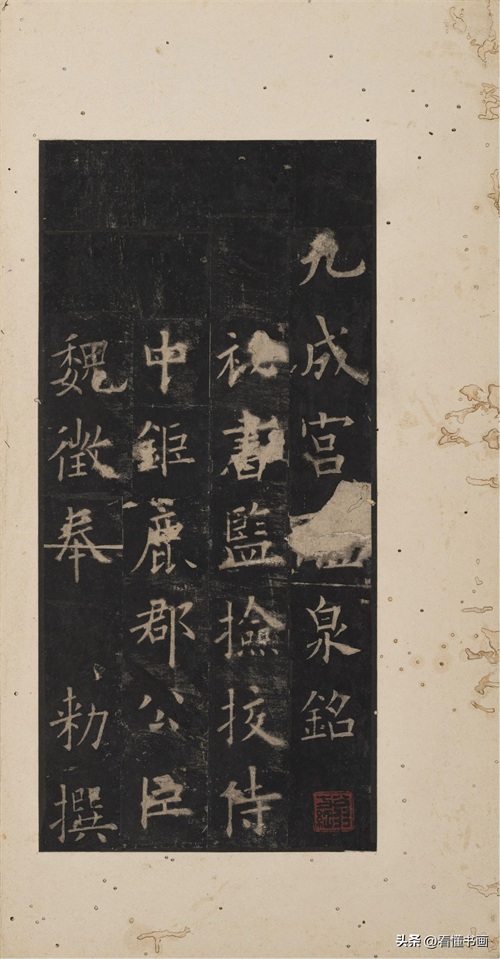 九成宮泉銘
祕書監撿挍侍
中鉅鹿郡公臣
魏徵奉 勅撰
头条 @看懂书画